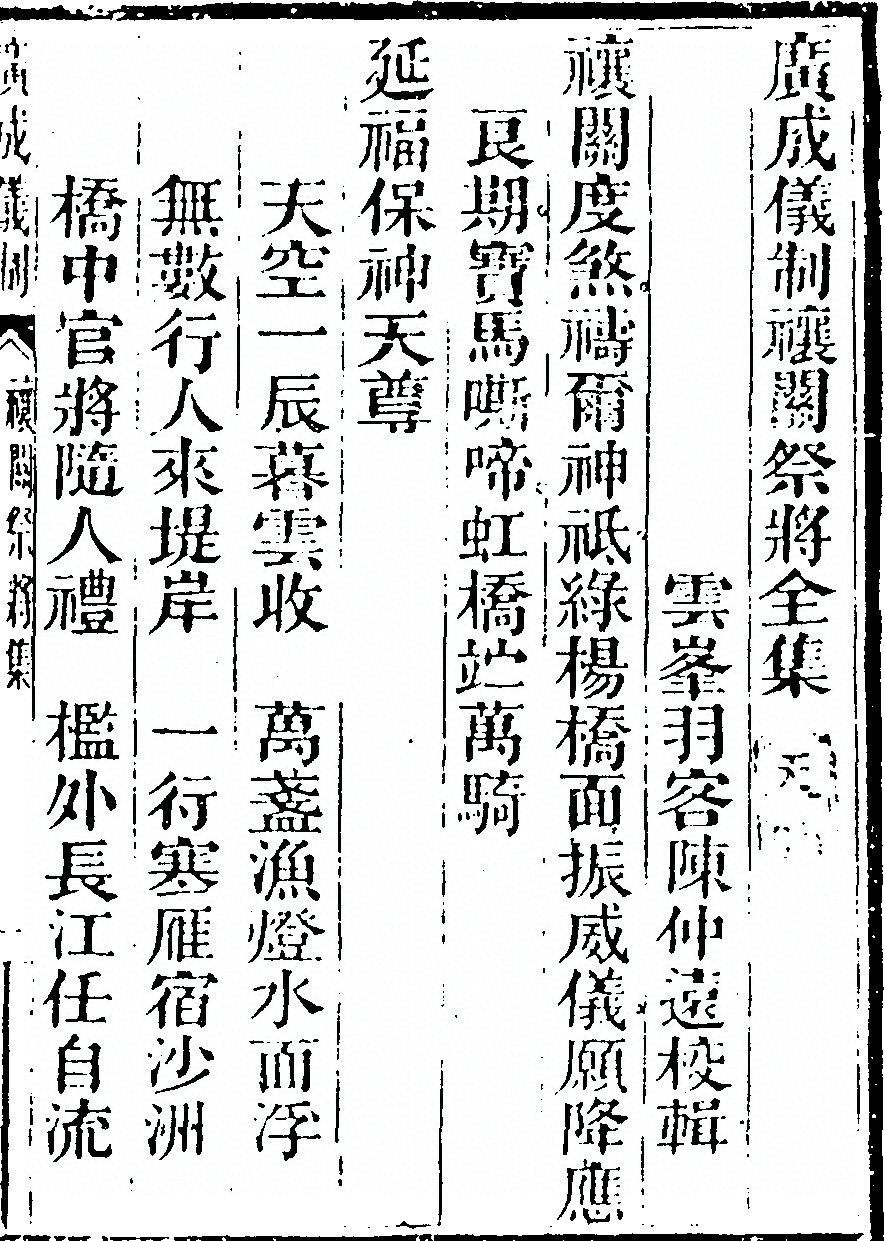 廣成儀制禳關祭將全集
雲峯羽客陳仲遠校輯
禳關度煞禱爾神祗綠楊橋面振威儀願降應
良期寶馬嘶啼虹橋竚萬騎
延福保神天尊
天空一辰暮雲收　萬盞漁燈水面浮
無數行人來堤岸　一行寒雁宿沙洲
橋中官將隨人禮　檻外長江任自流
廣成儀制　禳關祭將集